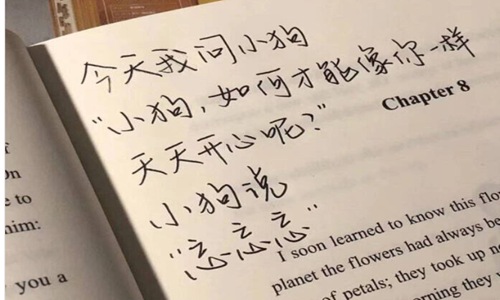 on
e to
him:
you a
今天我问小狗
"小狗,如何才能像你一样
天天开心呢?"
小狗说
"忘忘忘"
Chapter 8
I soon learned to know this flo
planet the flowers had always be
of petals; they took up no
they w